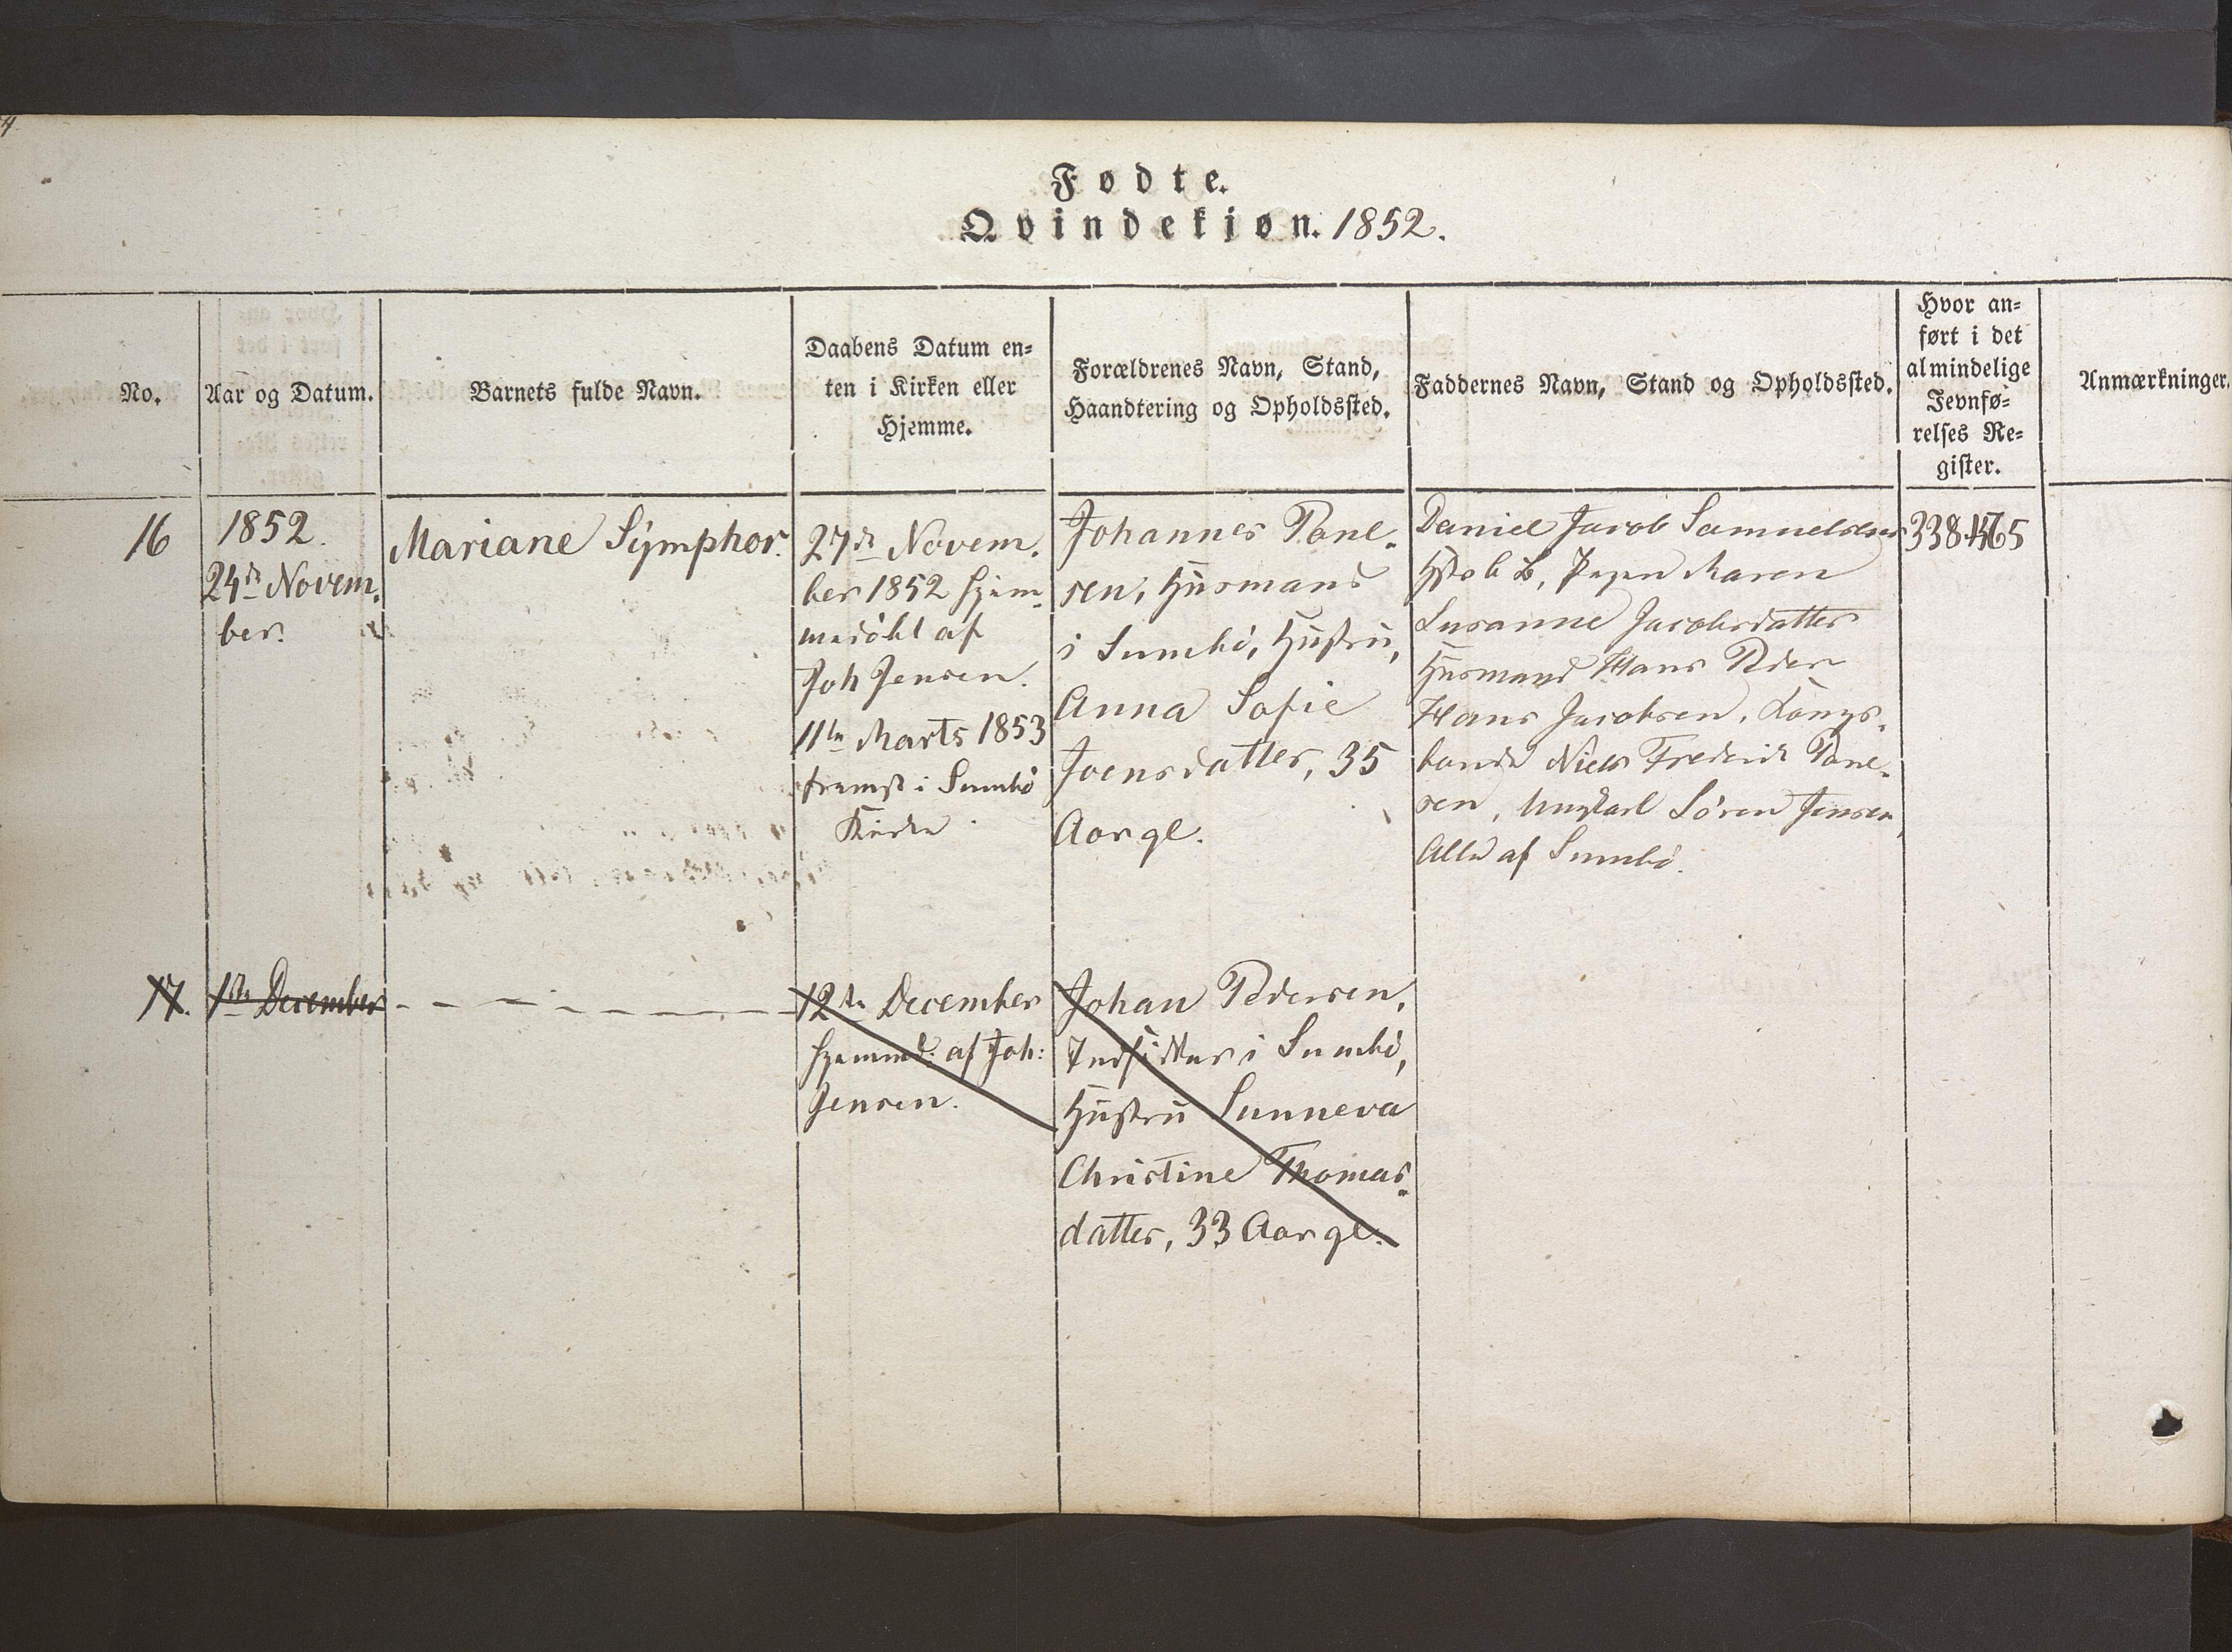 Fødte.
Qvindekjøn. 1852.
No.
Aar og Datum.
Barnets fulde Navn.
Daabens Datum en-
ten i Kirken eller
Hjemme.
Forældrenes Navn, Stand,
Haandtering og Opholdssted.
Faddernes Navn, Stand og Opholdssted.
Hvor an-
ført i det
almindelige
Jevnfø-
relses Re-
gister.
Anmærkninger.
16
1852.
24de Novem-
ber.
Mariane Symphor.
27de Novem-
ber 1852 hjem-
medøbt af
Joh Jensen.
11te Marts 1853
fremst i Sumbø
Kirke
Johannes Poul-
sen, Huusmand
i Sumbø, Hustru,
Anna Sofie
Joensdatter, 35
Aar gl.
Daniel Jacob Samuelsens
Pigen Maren
Susanne Jacobsdatter
Huusmand Hans Peder
Hans Jacobsen, Kongs-
bonde Niels Frederik Poul-
sen, Ungkarl Sören Jensen,
Alle af Sumbø.
338
17.
1ste December
12te December
hjemmed. af Joh:
Jensen.
Johan Pedersen,
Indsidder i Sumbø,
Hustru Sunneva
Christine Thomas-
datter, 33 Aar gl.